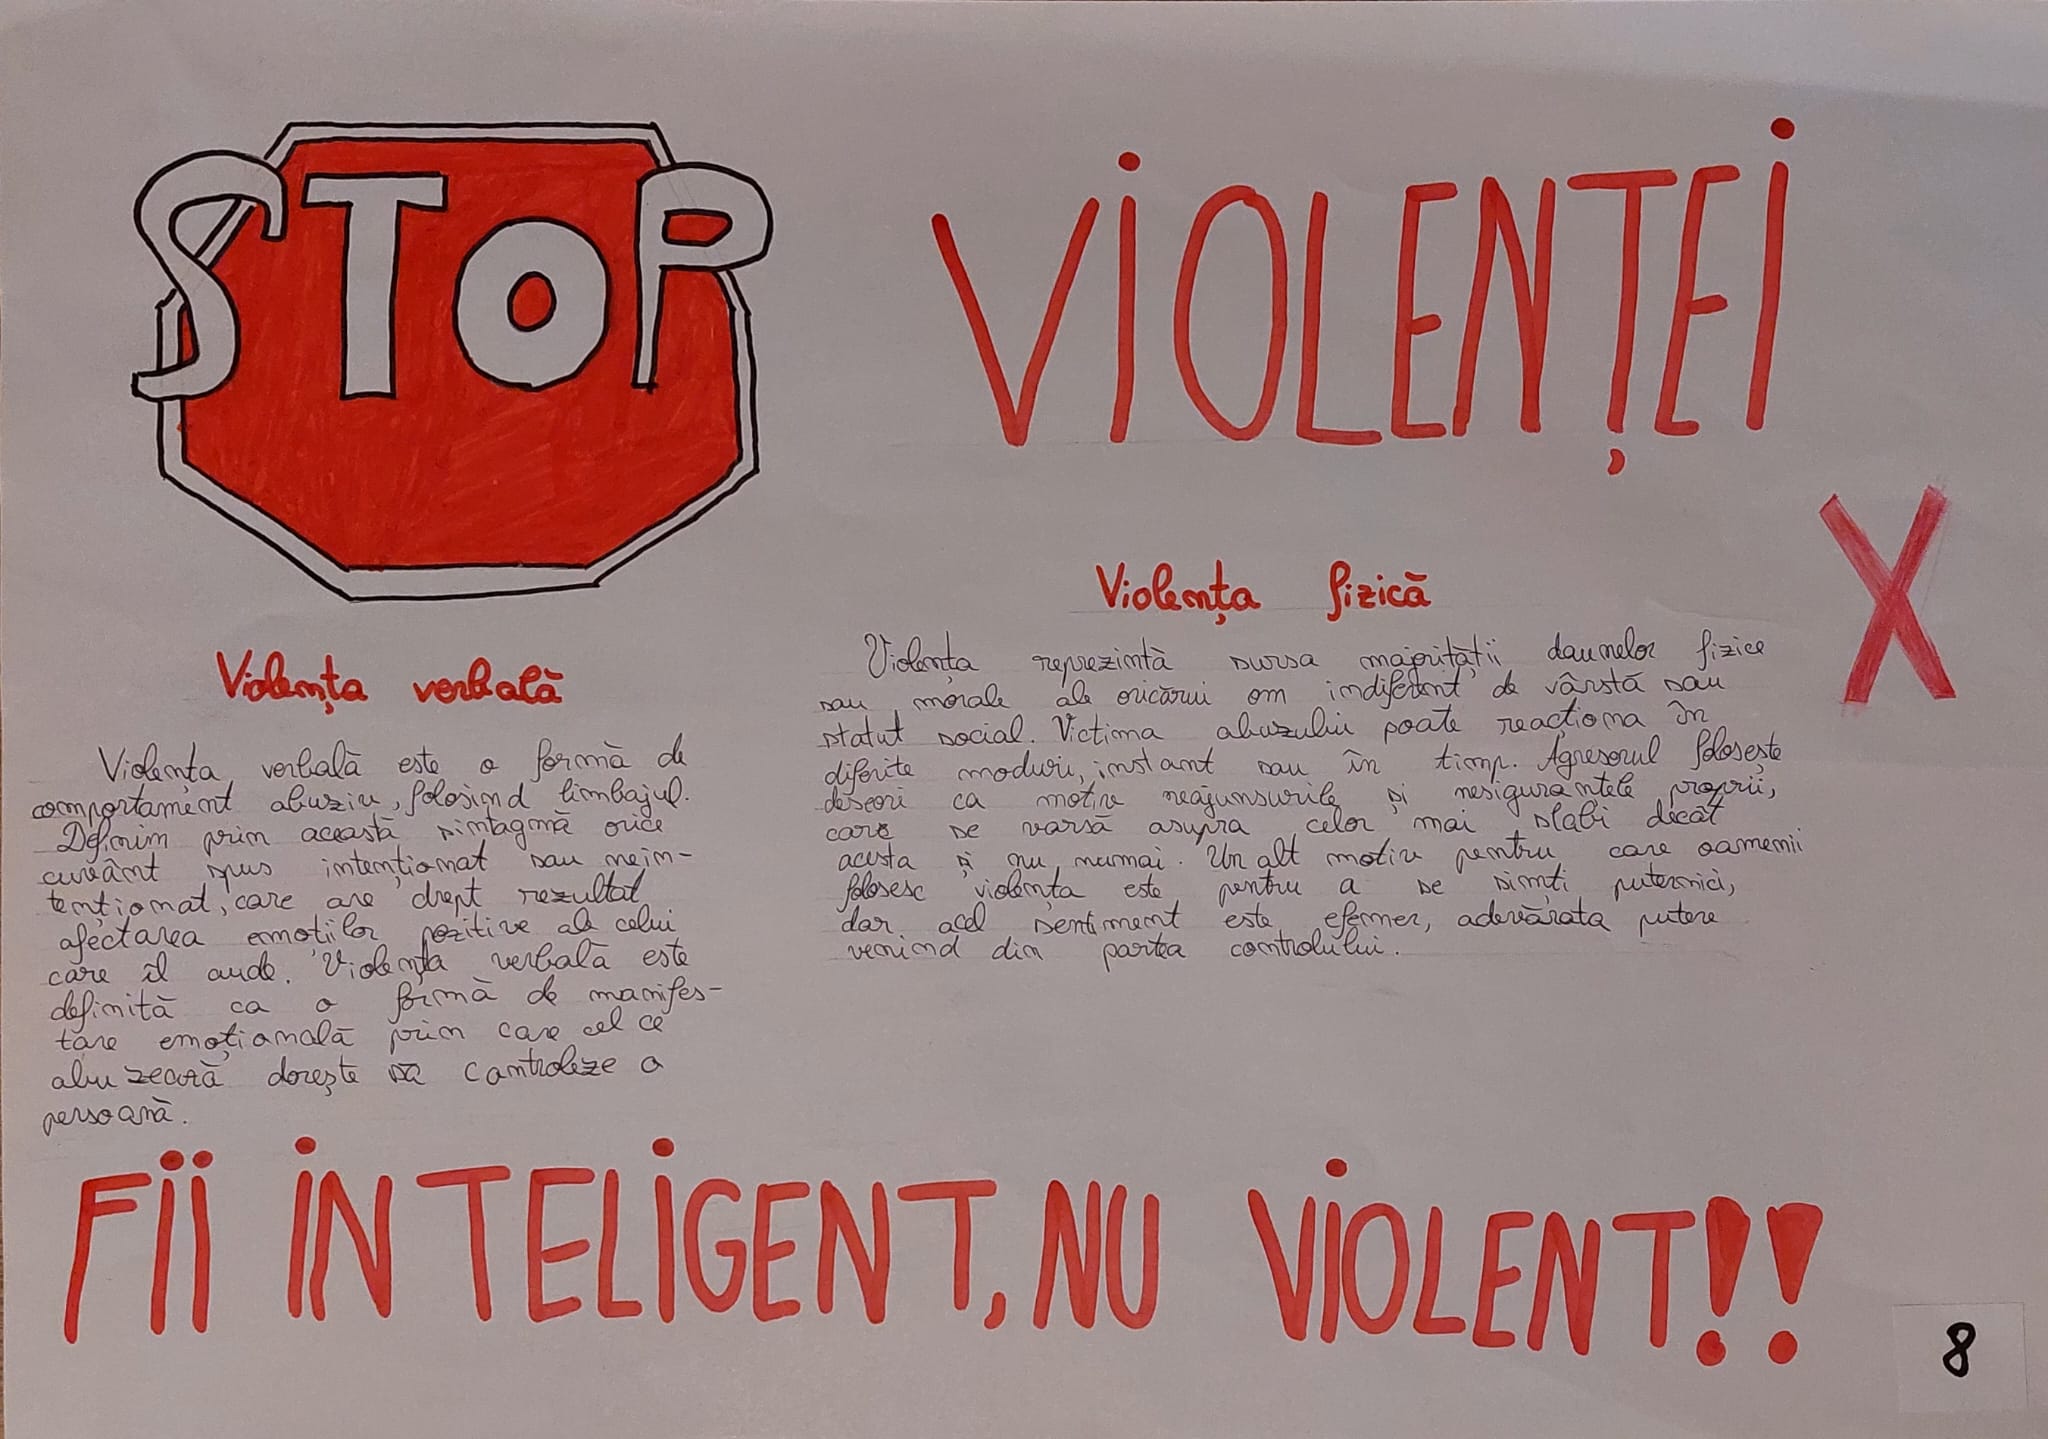 STOP
VIOLENȚEI
X
Violența verbală
Violența verbală este o formă de
comportament abuziv, folosind limbajul.
Definim prin această sintagmă orice
cuvânt spus intenționat sau nein-
tenționat, care are drept rezultat
afectarea emoțiilor pozitive ale celui
care îl aude. Violența verbală este
definită ca o formă de manifes-
tare emoțională prin care cel ce
abuzează dorește să controleze o
persoană.
Violența fizică
Violența reprezintă sursa majorității daunelor fizice
sau morale ale oricărui om indiferent de vârstă sau
statut social. Victima abuzului poate reacționa în
diferite moduri, instant sau în timp. Agresorul folosește
deseori ca motiv neajunsurile și nesiguranțele proprii,
care se varsă asupra celor mai slabi decât
acesta și nu numai. Un alt motiv pentru care oamenii
folosesc violența este pentru a se simți puternici,
dar acel sentiment este efemer, adevărata putere
venind din partea controlului.
FII INTELIGENT, NU VIOLENT!!
8